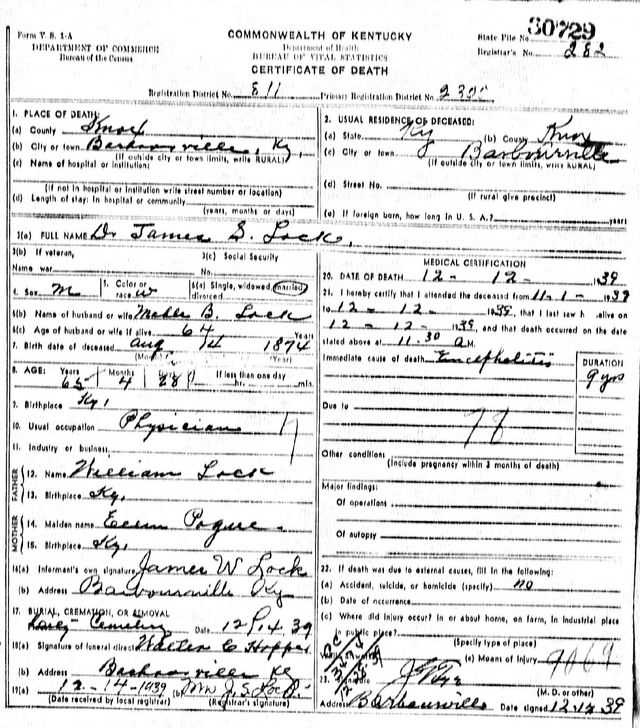 Form V. S. 1-A
DEPARTMENT OF COMMERCE
Bureau of the Census
COMMONWEALTH OF KENTUCKY
Department of Health
BUREAU OF VITAL STATISTICS
CERTIFICATE OF DEATH
30729
State File No.
Registrar's No. 282
Registration District No. 811 Primary Registration District No.
1. PLACE OF DEATH:
(a) County Knox
(b) City or town Barbourville, Ky,
(If outside city or town limits, write RURAL)
(c) Name of hospital or institution:
(If not in hospital or institution write street number or location)
(d) Length of stay: In hospital or community
(years, months or days)
2. USUAL RESIDENCE OF DECEASED:
(a) State Ky (b) County Knox
(c) City or town Barbourville
(If outside city or town limits, write RURAL)
(d) Street No.
(If rural give precinct)
(e) If foreign born, how long in U. S. A.? years
3(a) FULL NAME Dr James S. Lock,
3(b) If veteran, 3(c) Social Security
Name war No.
4. Sex M 5. Color or race W 6(a) Single, widowed, married, divorced
6(b) Name of husband or wife B. Lock
6(c) Age of husband or wife if alive 64 Years
7. Birth date of deceased Aug 1st 1874
(Month) (Year)
8. AGE: Years Months Days If less than one day
65 4 28 hr. min.
9. Birthplace Ky,
10. Usual occupation Physician
11. Industry or business
FATHER
12. Name William Lock
13. Birthplace Ky,
MOTHER
14. Maiden name Pogue
15. Birthplace Ky,
16(a) Informant's own signature James W Lock
(b) Address Barbourville Ky
17. BURIAL, CREMATION, OR REMOVAL
Cemetery Date 12-14 39
18(a) Signature of funeral director Walter C Hopper
(b) Address Barbourville Ky
19(a) 12-14-1939 (b)
(Date received by local registrar) (Registrar's signature)
MEDICAL CERTIFICATION
20. DATE OF DEATH 12 - 12 - 1939
21. I hereby certify that I attended the deceased from 11-1-1939
to 12-12-1939, that I last saw h alive on
12-12-1939, and that death occurred on the date
stated above at 11.30 A M.
Immediate cause of death Encephalitis
DURATION
9 yrs
Due to
78
Other conditions
(Include pregnancy within 3 months of death)
Major findings:
Of operations
Of autopsy
22. If death was due to external causes, fill in the following:
(a) Accident, suicide, or homicide (specify) no
(b) Date of occurrence
(c) Where did injury occur? In or about home, on farm, in industrial place
in public place?
(Specify type of place)
While at work? (e) Means of Injury
23. Signature
(M. D. or other)
Address Barbourville Date signed 12-12-39